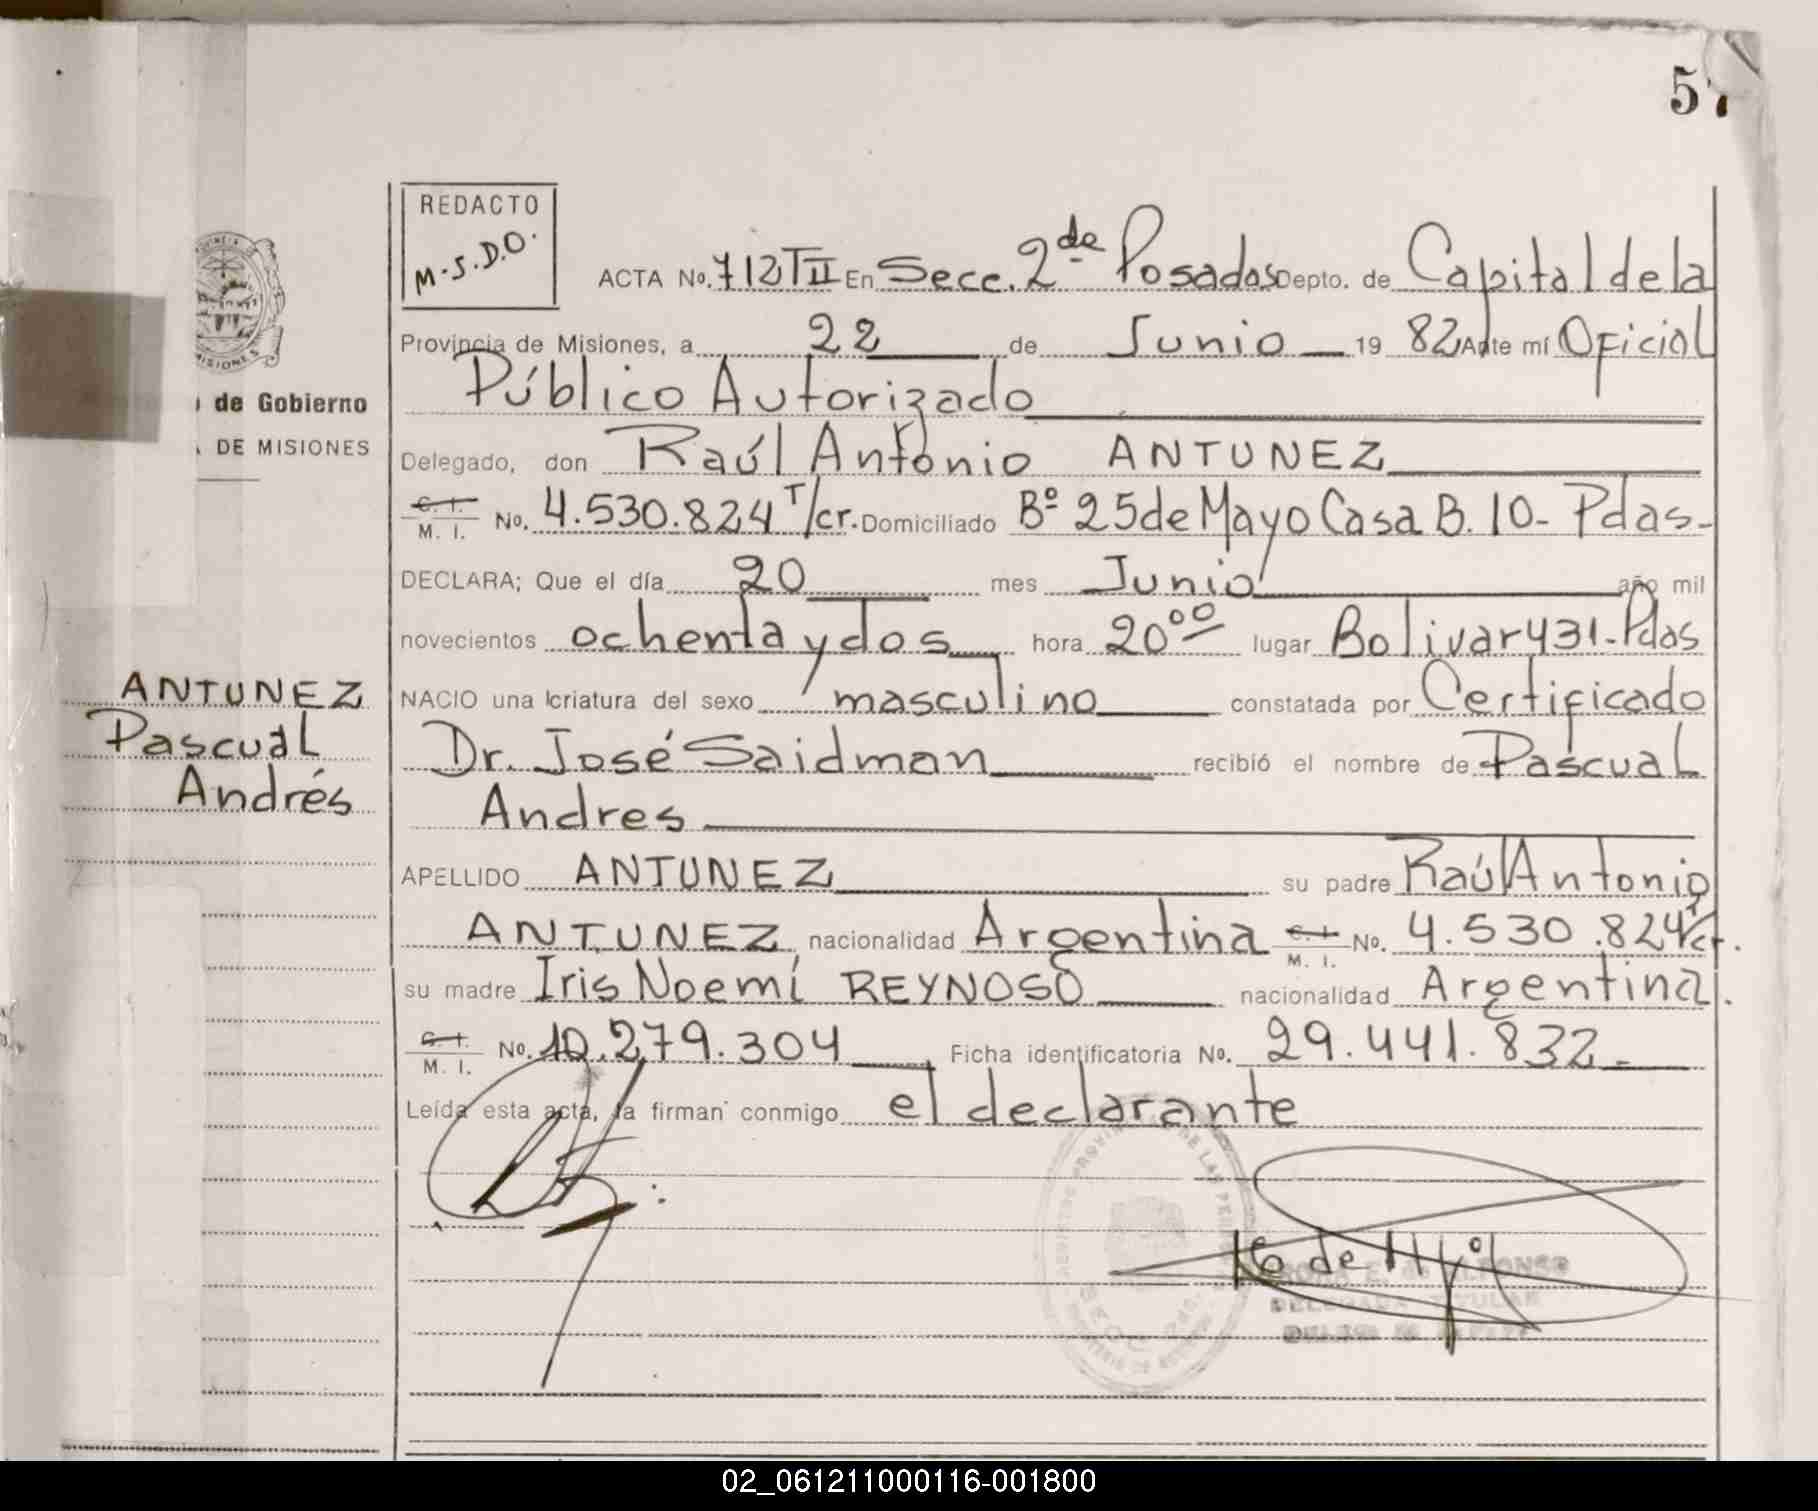 5
REDACTO
M.S.D.O.
ACTA No. 712 T II En Secc. 2da Posadas Depto. de Capital de la
Provincia de Misiones, a 22 de Junio 19 82 Ante mí Oficial
Público Autorizado
de Gobierno
DE MISIONES
Delegado, don Raúl Antonio ANTUNEZ
C. I.
M. I. No. 4.530.824 T/cr. Domiciliado Bº 25 de Mayo Casa B. 10- Pdas-
DECLARA; Que el día 20 mes Junio año mil
novecientos ochenta y dos hora 20ºº lugar Bolivar 431- Pdas
ANTUNEZ
Pascual
Andrés
NACIO una criatura del sexo masculino constatada por Certificado
Dr. José Saidman recibió el nombre de Pascual
Andres
APELLIDO ANTUNEZ su padre Raúl Antonio
ANTUNEZ nacionalidad Argentina C. I. M. I. No. 4.530.824 T/cr.
su madre Iris Noemí REYNOSO nacionalidad Argentina.
C. I.
M. I. No. 10.279.304 Ficha identificatoria No. 29.441.832-
Leída esta acta, la firman conmigo el declarante
DELEGADA TITULAR
02_061211000116-001800